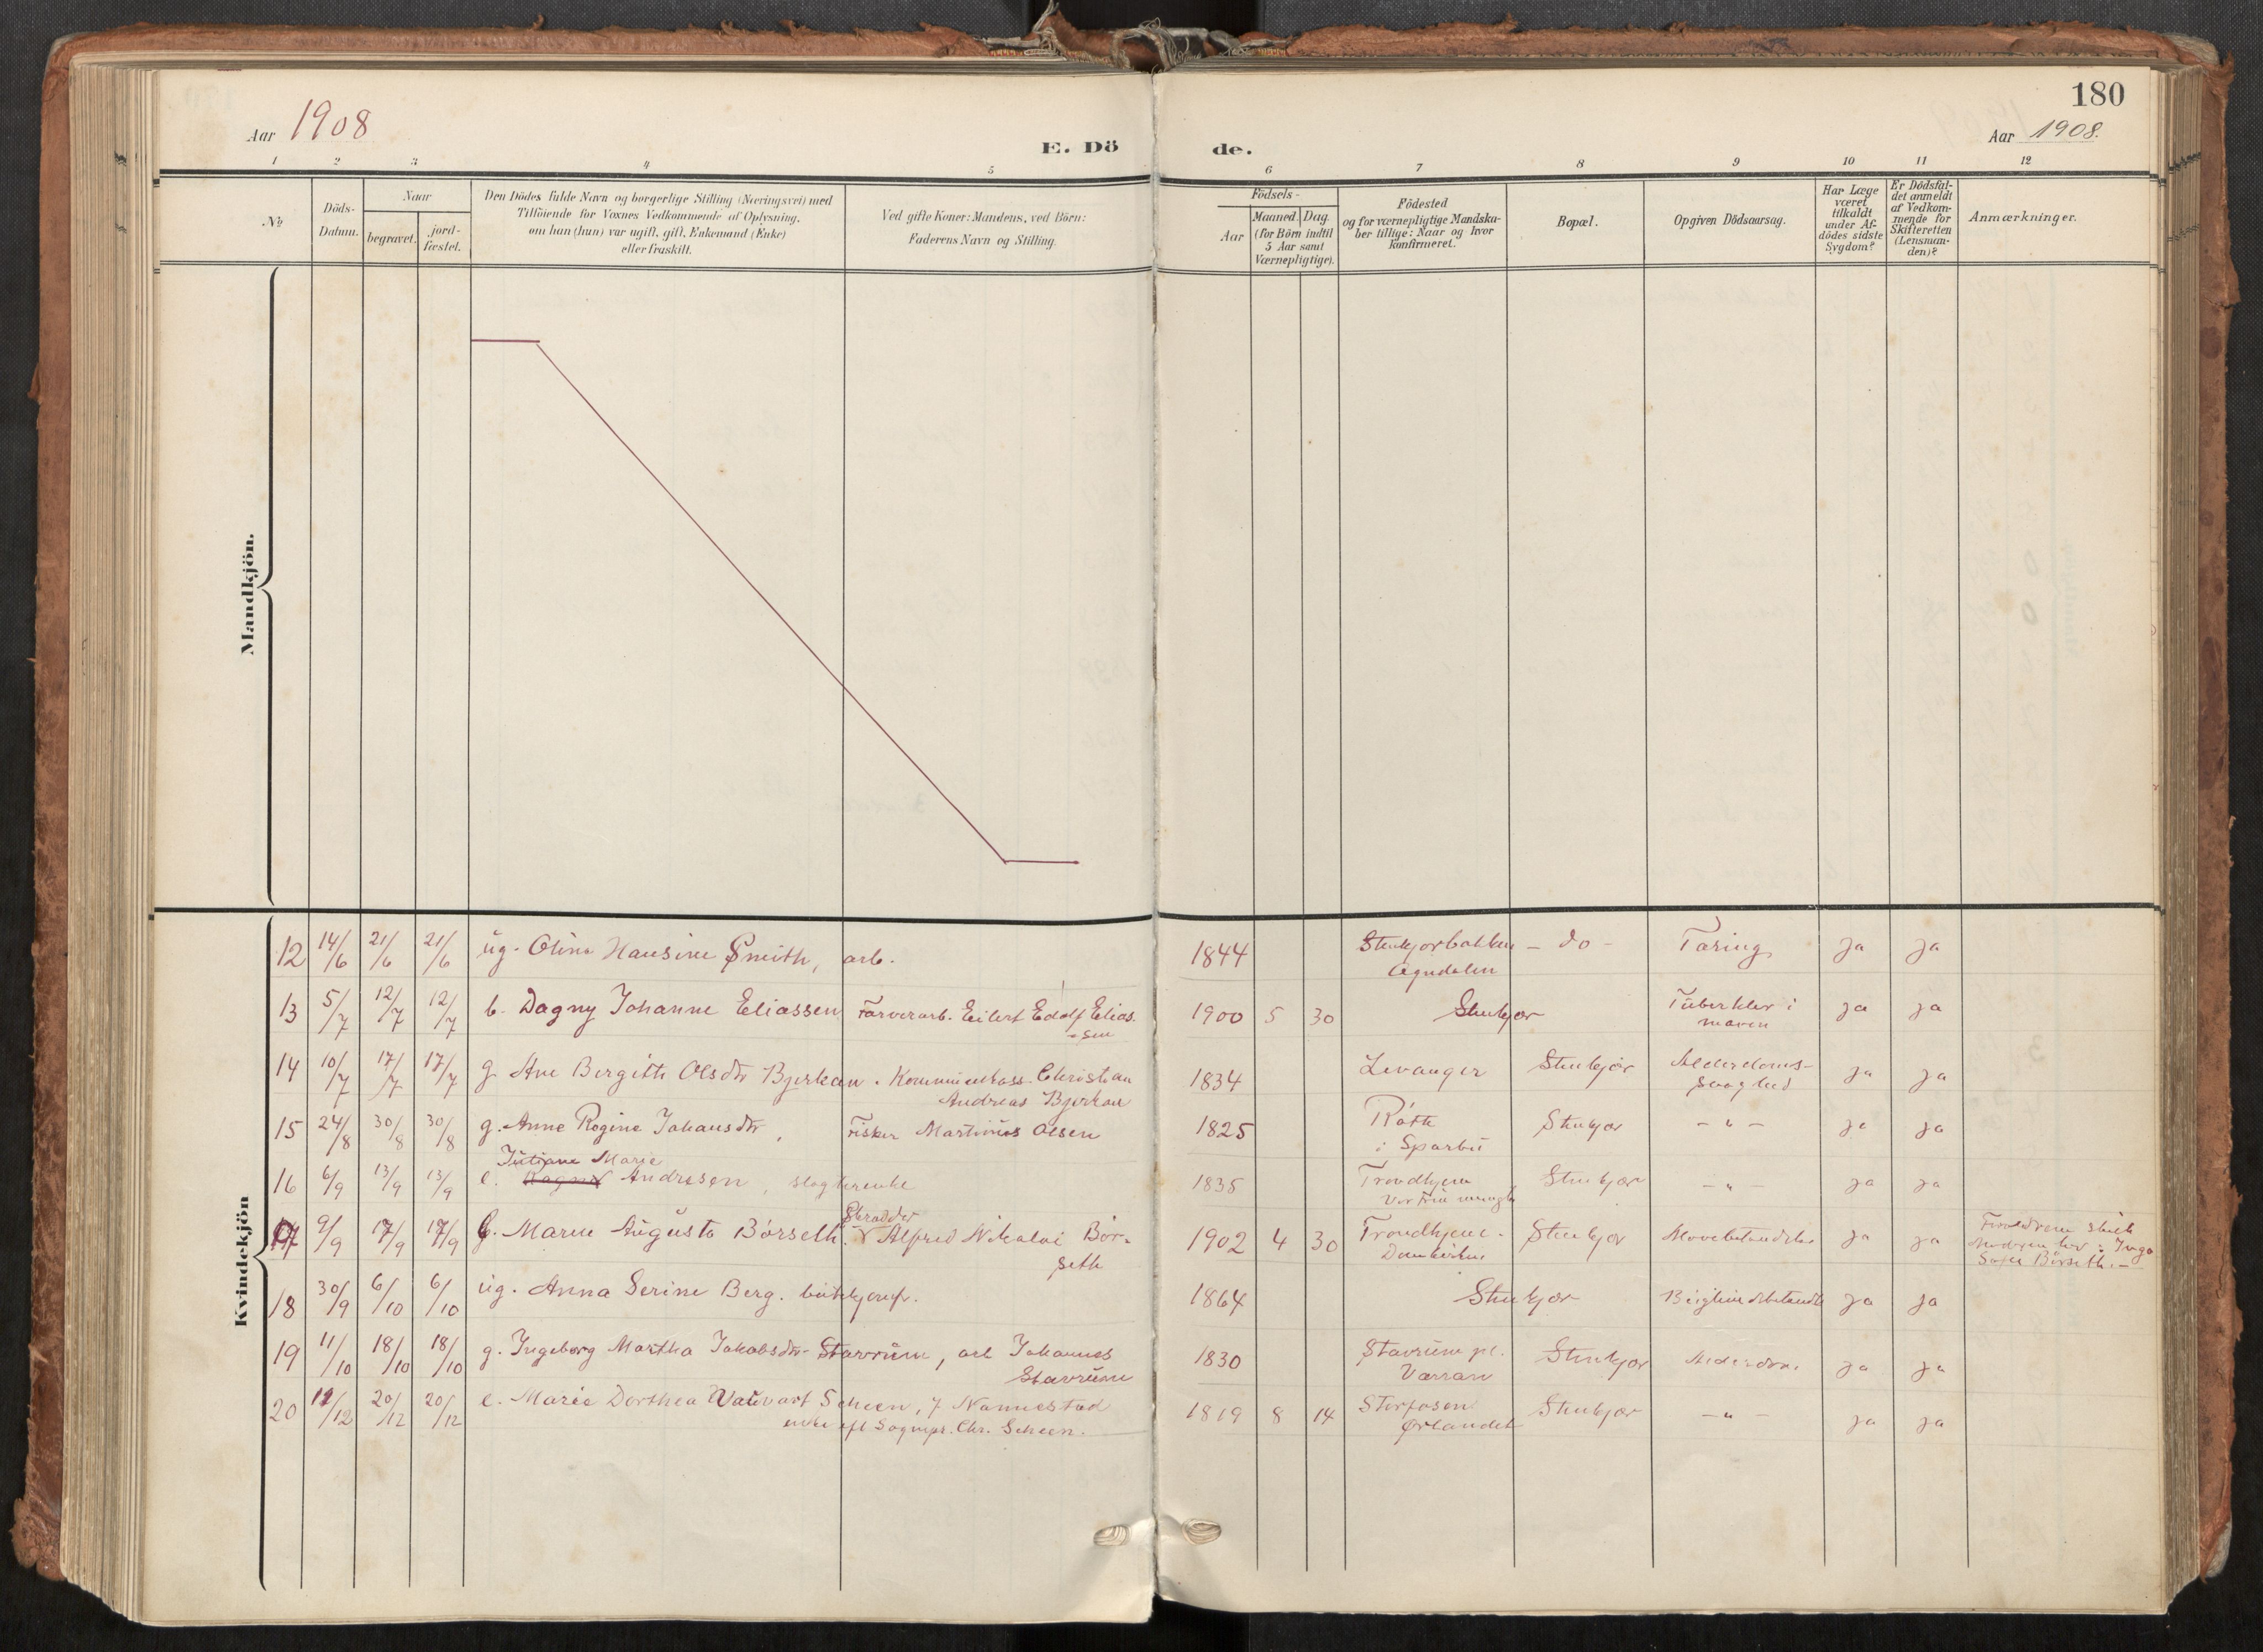 180
Aar 1908
Aar 1908.
E. Dö
de.
1 2 3 4 5 6 7 8 9 10 11 12
No
Döds-
Datum.
Naar
begravet.
jord-
fæstet.
Den Dödes fulde Navn og borgerlige Stilling (Næringsvei) med
Tilföiende for Voxnes Vedkommende af Oplysning,
om han (hun) var ugift, gift, Enkemand (Enke)
eller fraskilt.
Ved gifte Koner: Mandens, ved Börn:
Faderens Navn og Stilling.
Födsels-
Aar
Maaned. Dag.
(for Börn indtil
5 Aar samt
Værnepligtige).
Födested
og for værnepligtige Mandska-
ber tillige: Naar og hvor
konfirmeret.
Bopæl.
Opgiven Dödsaarsag.
Har Læge
været
tilkaldt
under Af-
dödes sidste
Sygdom?
Er Dödsfal-
det anmeldt
af Vedkom-
mende for
Skifteretten
(Lensman-
den)?
Anmærkninger.
Mandkjön.
Kvindekjön
12 14/6 21/6 21/6 ug. Olina Hansine Smith, arb. 1844 Stenkjærbakken - do - Tæring ja ja
Ogndalen
13 5/7 12/7 12/7 b. Dagny Johanne Eliassen Farverarb. Eilert Edolf Elias- 1900 5 30 Stenkjær Tuberkler i ja ja
sen
maven
14 10/7 17/7 17/7 g Ane Bergith Olsdtr Bjerkan. Kommunekass. Christian 1834 Levanger Stenkjær Alderdoms- ja ja
Andreas Bjerkan
svaghed
15 24/8 30/8 30/8 g. Anne Regine Johansdtr, Fisker Martinus Olsen 1825 Røth Stenkjær - " - ja ja
i Sparbu
Jutiane Marie
16 6/9 13/9 13/9 e. Andresen, slagterenke 1835 Trondhjem Stenkjær - " - ja ja
Vor Frue menigh
Skrædder
17 9/9 17/9 17/9 b. Maren Augusta Börseth. Alfred Nikolai Bör- 1902 4 30 Trondhjem. Stenkjær ja ja
seth
Domkirken
Forældrene skilt
Moderen her: Inga
Börseth. -
18 30/9 6/10 6/10 ug. Anna Serine Berg. 1864 Stenkjær ja ja
19 11/10 18/10 18/10 g. Ingeborg Martha Jakobsdtr Stavrum, arb Johannes 1830 Stavrum pl. Stenkjær Alderdom ja ja
Stavrum
Værran
20 12/12 20/12 20/12 e. Marie Dorthea Scheen, f Nannestad 1819 8 14 Storfosen Stenkjær - " - ja ja
enke eft Sognepr. Chr. Scheen.
Ørlandet